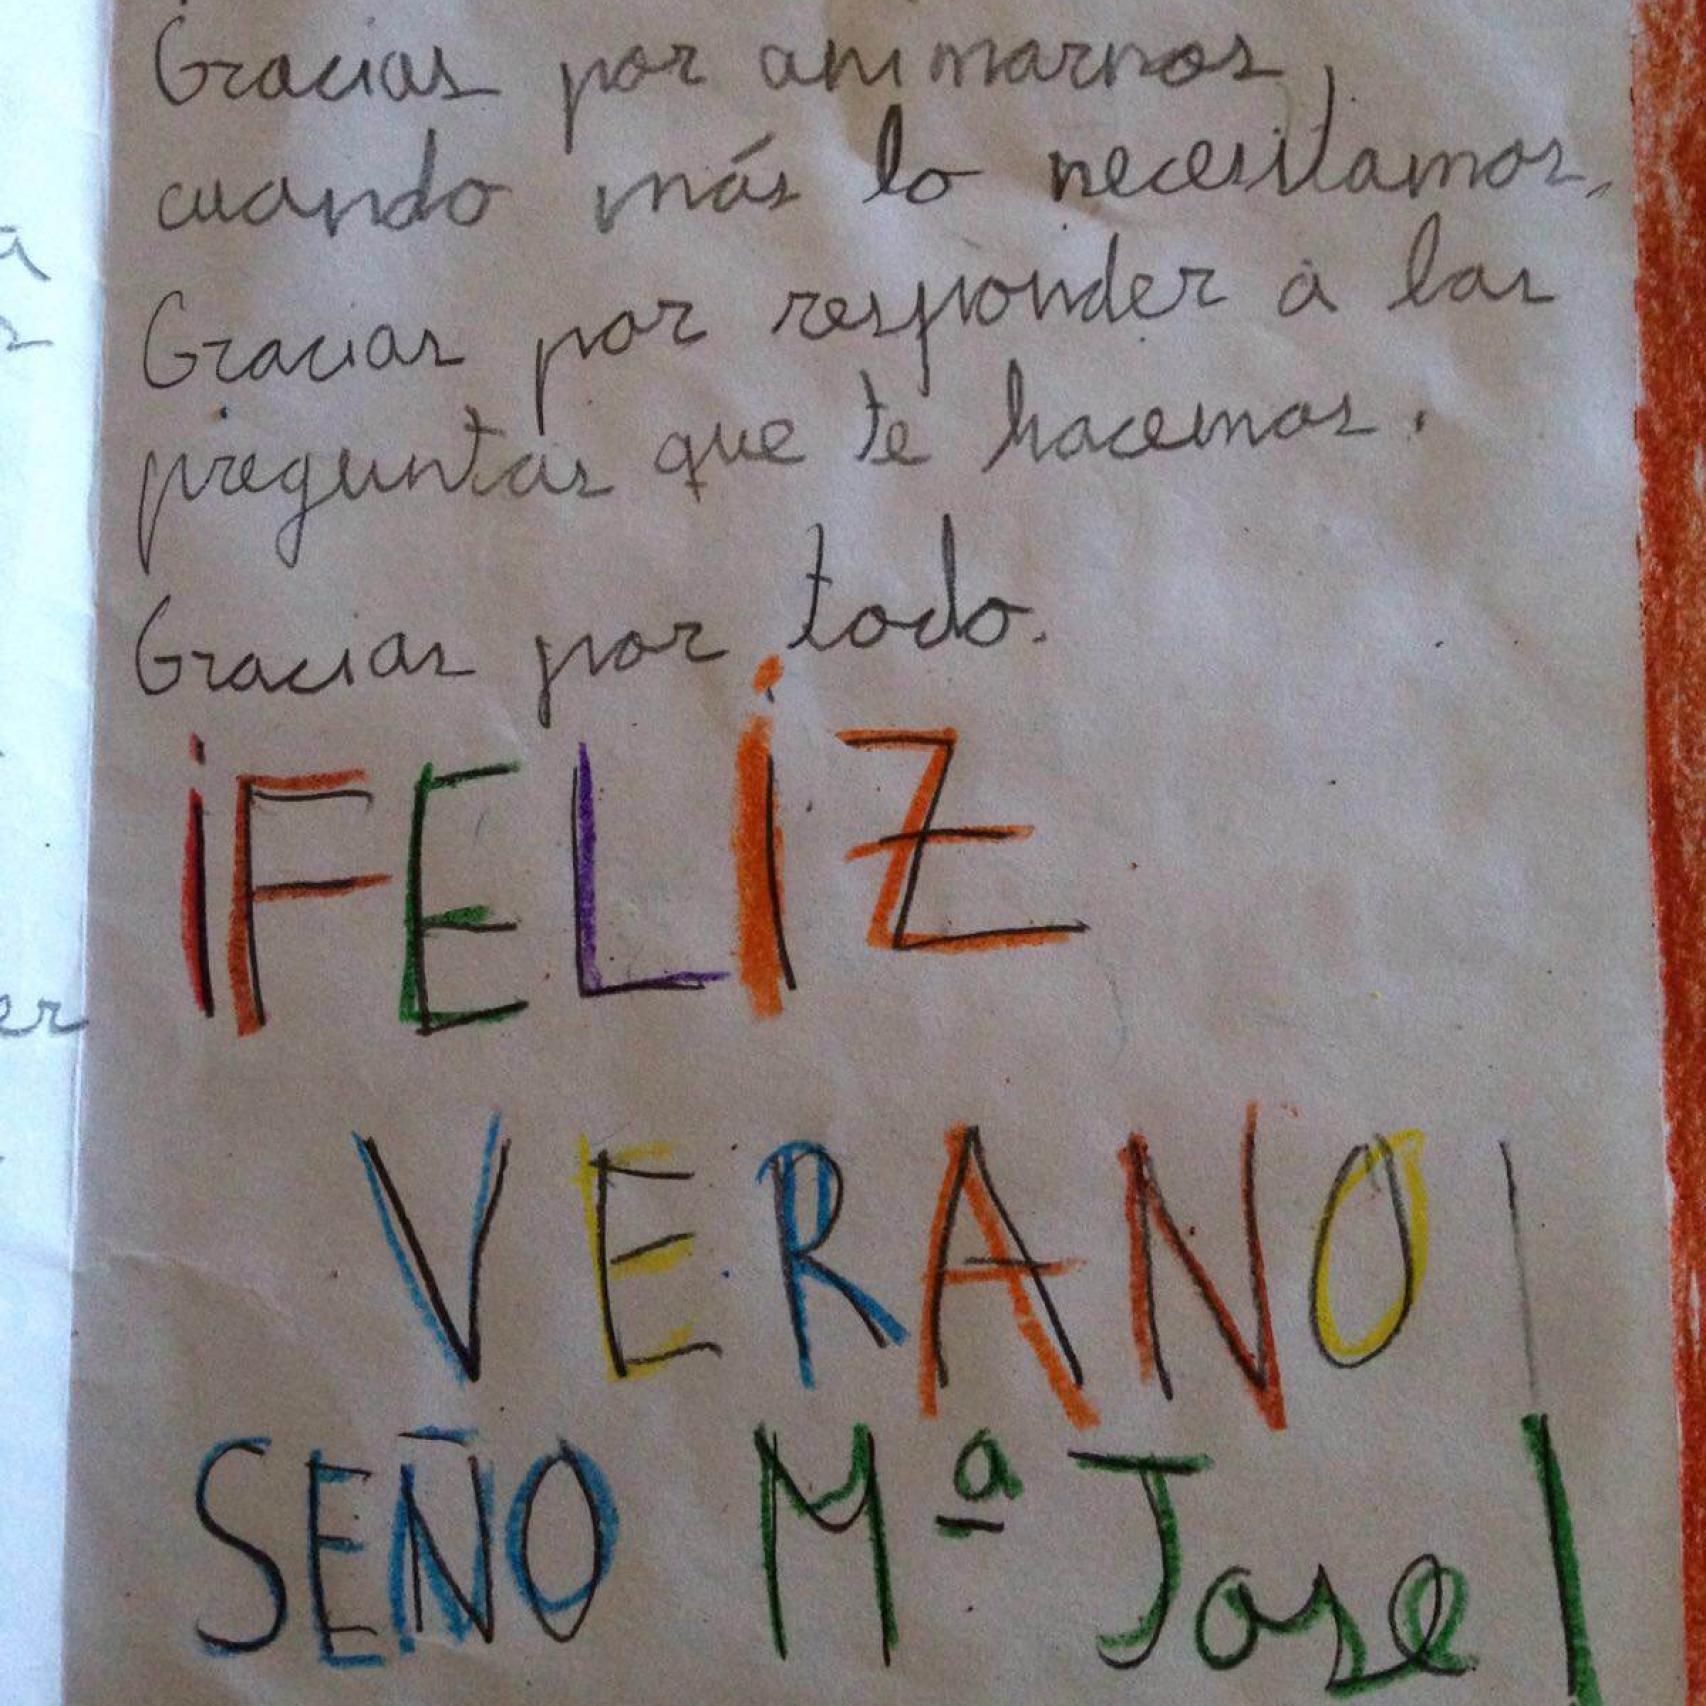 Gracias por animarnos,
cuando más lo necesitamos,
Gracias por responder a las
preguntas que te hacemos.
Gracias por todo.
¡FELIZ
VERANO!
SEÑO Mª Jose!
a
er